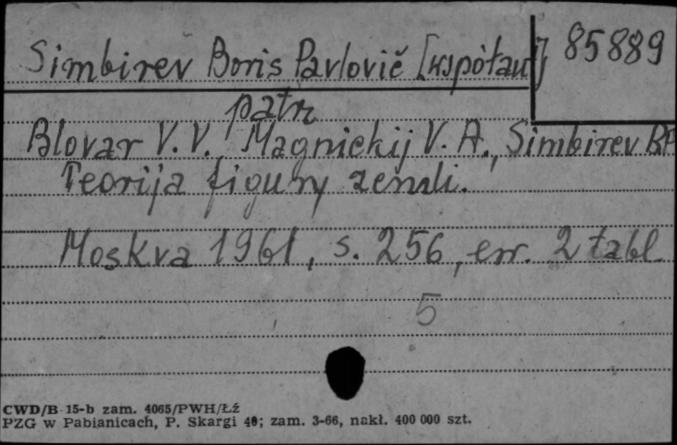 Simbirev Boris Pavlovič [współaut] 85889
patrz
Blovar V. V. Magnickij V. A., Simbirev BP
Teorija figury zemli.
Moskva 1961, s. 256, err. 2 tabl.
5
CWD/B 15-b zam. 4065/PWH/Łź
PZG w Pabianicach, P. Skargi 40; zam. 3-66, nakł. 400 000 szt.